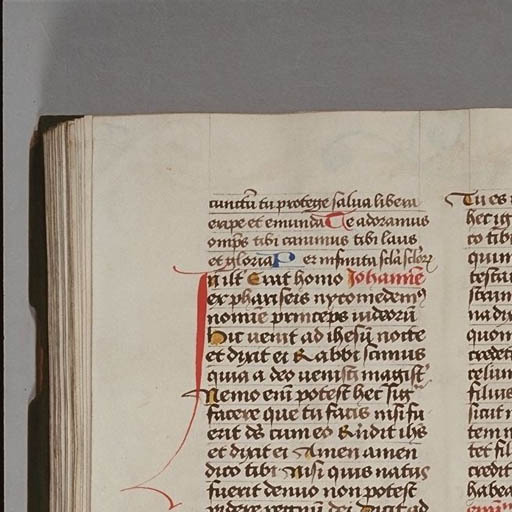 cunctū tu protege salua libera
eripe et emunda Te adoramus
omp̄s tibi canimus tibi laus
et gloria P er infinita sc̄la sc̄lorꝝ
In ill̄ Erat homo Johannē
ex phariseis nycomedem⁹
nomīe princeps iudeorū
Hic uenit ad ihesū nocte
et dixit ei Rabbi scimus
quia a deo uenisti magist̄
Nemo enī potest hec sig
facere que tu facis nisi fu
erit ds̄ cum eo R̄ndit ih̄s
et dixit ei Amen amen
dico tibi Nisi quis natus
fuerit denuo non potest
videre regnū dei Dicit ad
Tu es
hec ig
co tibi
quim
testa
stram
na dix
quom
credet
celum
filius
sicut
tem
tet fil
credit
habea